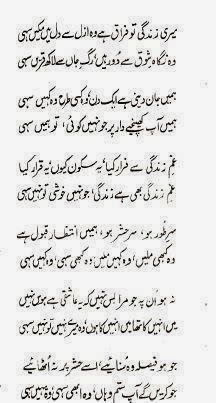 میری زندگی تو فراق ہے وہ ازل سے دل میں مکیں سہی
وہ نگاہ شوق سے دور ہیں رگ جاں سے لاکھ قریں سہی
ہمیں جان دینی ہے ایک دن وہ کسی طرح وہ کہیں سہی
ہمیں آپ کھینچئے دار پر جو نہیں کوئی تو ہمیں سہی
غم زندگی سے فرار کیا یہ سکون کیوں یہ قرار کیا
غم زندگی بھی ہے زندگی جو نہیں خوشی تو نہیں سہی
سر طور ہو سر حشر ہو ہمیں انتظار قبول ہے
وہ کبھی ملیں وہ کہیں ملیں وہ کبھی سہی وہ کہیں سہی
نہ ہو ان پہ جو مرا بس نہیں کہ یہ عاشقی ہے ہوس نہیں
میں انہیں کا تھا میں انہیں کا ہوں وہ میرے نہیں تو نہیں سہی
جو ہو فیصلہ وہ سنائیے اسے حشر پر نہ اٹھائیے
جو کریں گے آپ ستم وہاں وہ ابھی سہی وہ یہیں سہی